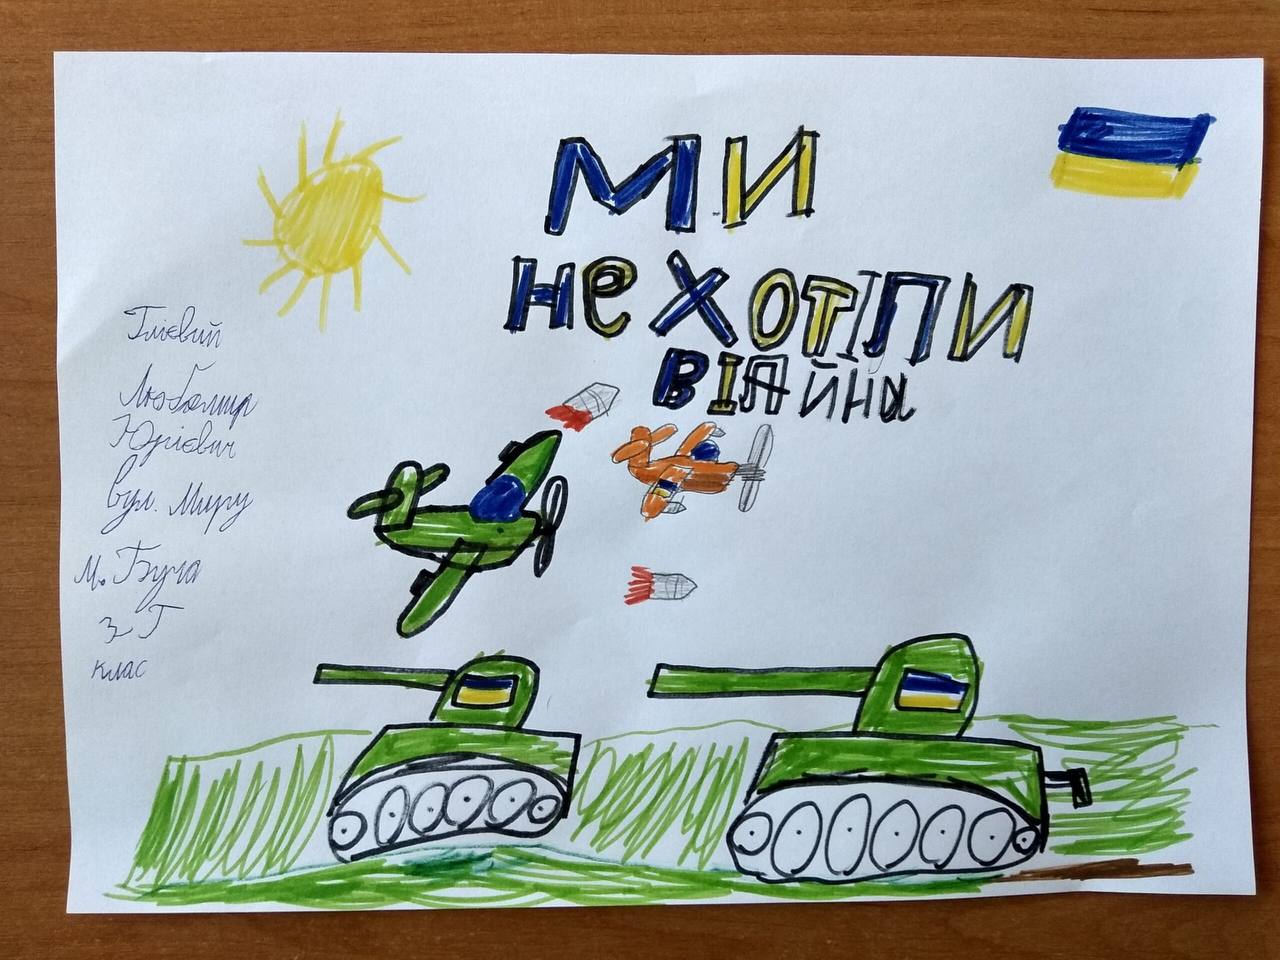 МИ
Не ХОТІЛИ
ВІАЙНа
Глієвий
Любомир
Юрієвич
вул. Миру
м. Буча
3-Г
клас